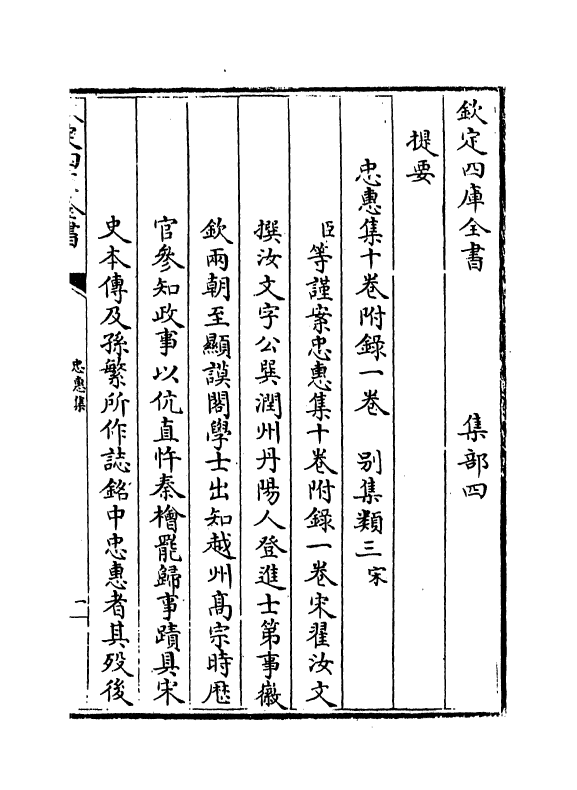 欽定四庫全書　集部四
提要
忠惠集十卷附錄一卷　別集類三宋
臣等謹案忠惠集十卷附錄一卷宋翟汝文
撰汝文字公巽潤州丹陽人登進士第事徽
欽兩朝至顯謨閣學士出知越州髙宗時歴
官參知政事以伉直忤秦檜罷歸事蹟具宋
史本傳及孫繁所作誌銘中忠惠者其歿後
忠惠集